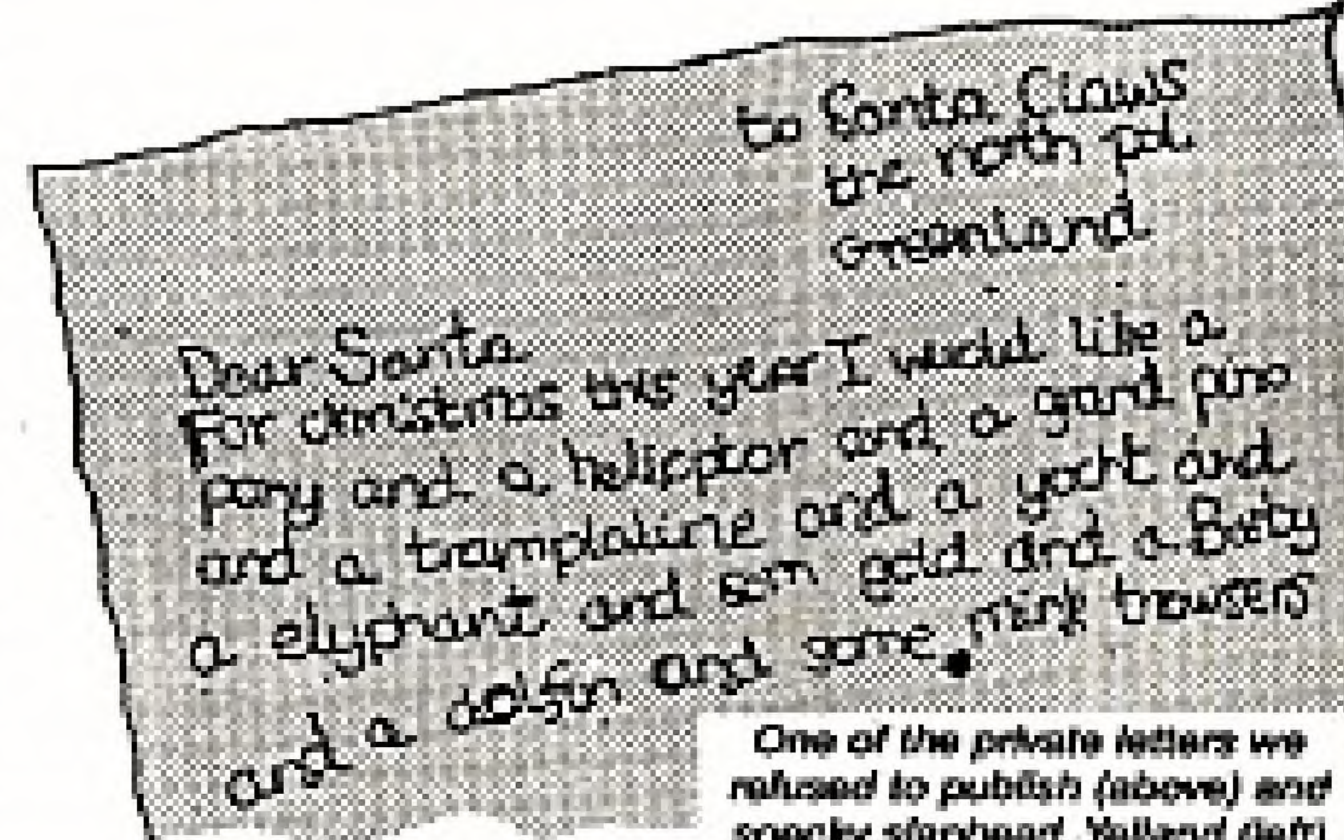 to Santa Claws
the north pol.
Greenland
Dear Santa
For christmas this year I would like a
pony and a helicptor and a grand pino
and a tramplaline and a yacht and
a elyphant and som gold and a Barby
and a dolfin and some mink trowsers
One of the private letters we
refused to publish (above) and
spooky slaphead Yelland (left)